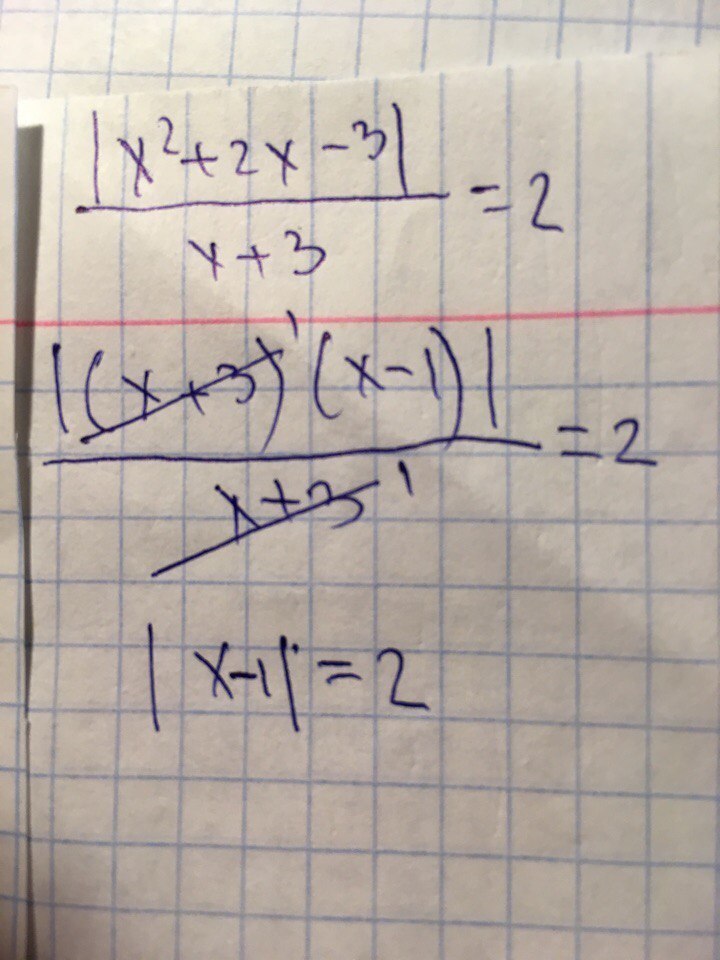 |x²+2x-3|
x+3
=2
|(x+3)¹(x-1)|
x+3¹
=2
|x-1|=2